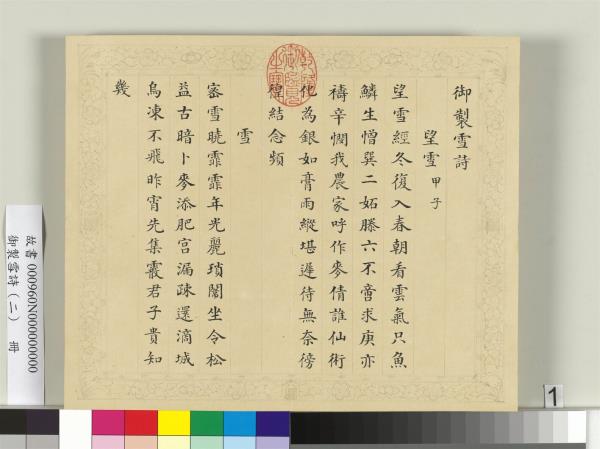 御製雪詩
望雪 甲子
望雪經冬復入春朝看雲氣只魚
鱗生憎巽二妬滕六不啻求庚亦
禱辛憫我農家呼作麥倩誰仙術
化為銀如膏雨縱堪遲待無奈徬
徨結念頻
雪
密雪曉霏霏年光麗瑣闈坐令松
益古暗卜麥添肥宮漏疎還滴城
烏凍不飛昨宵先集霰君子貴知
幾
乾隆御覽之寶
故書 000960N000000000
御製雪詩（二） 冊
1